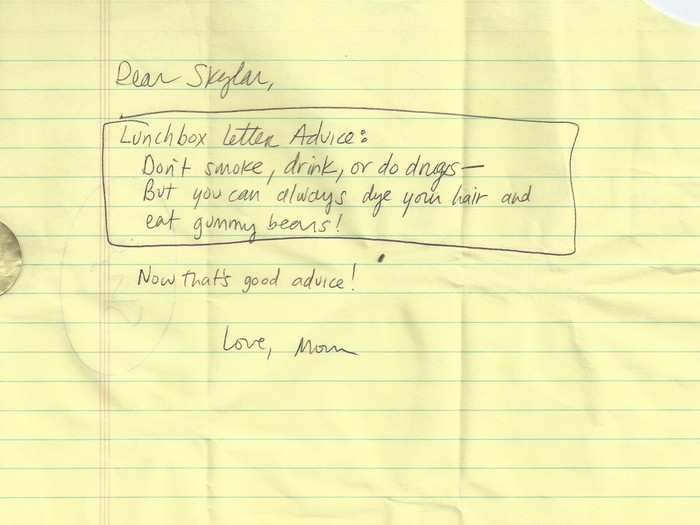 Dear Skylar,
Lunchbox Letter Advice:
Don't smoke, drink, or do drugs—
But you can always dye your hair and
eat gummy bears!
Now that's good advice!
Love, Mom